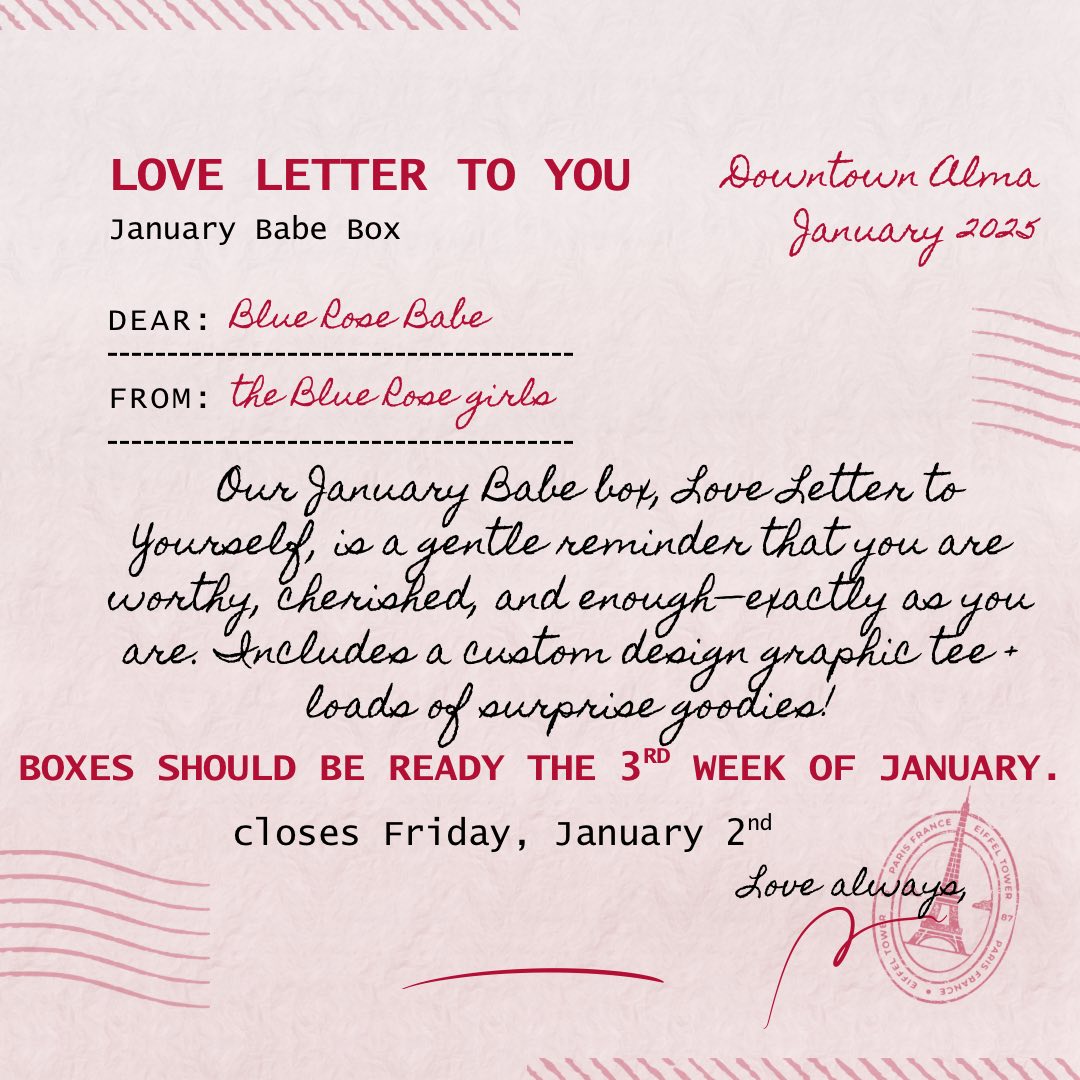 LOVE LETTER TO YOU
January Babe Box
Downtown Alma
January 2025
DEAR: Blue Rose Babe
FROM: the Blue Rose girls
Our January Babe box, Love Letter to
Yourself, is a gentle reminder that you are
worthy, cherished, and enough—exactly as you
are. Includes a custom design graphic tee +
loads of surprise goodies!
BOXES SHOULD BE READY THE 3RD WEEK OF JANUARY.
closes Friday, January 2nd
Love always,
PARIS FRANCE EIFFEL TOWER 87 PARIS FRANCE • EIFFEL TOWER